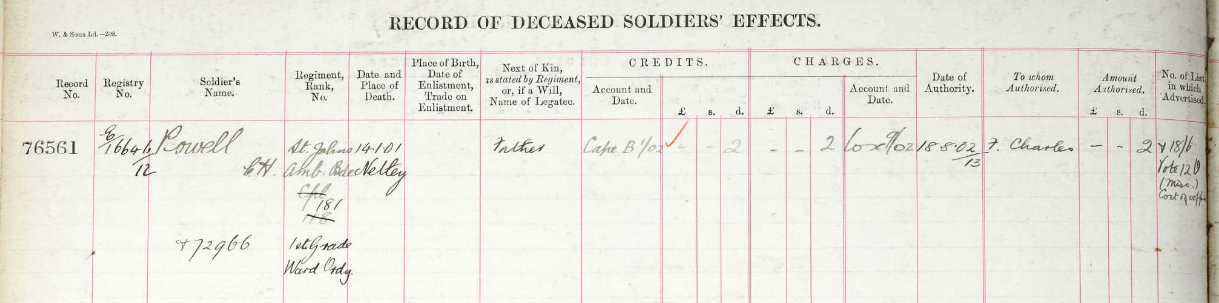 RECORD OF DECEASED SOLDIERS' EFFECTS.
W. & Sons Ld.—298.
Record No.
Registry No.
Soldier's Name.
Regiment, Rank, No.
Date and Place of Death.
Place of Birth, Date of Enlistment, Trade on Enlistment.
Next of Kin, as stated by Regiment, or, if a Will, Name of Legatee.
CREDITS.
Account and Date.
£ s. d.
CHARGES.
£ s. d.
Account and Date.
Date of Authority.
To whom Authorised.
Amount Authorised.
£ s. d.
No. of List in which Advertised.
76561
E/16646/12
Powell
C H.
+72966
St. Johns
Amb. Bde
181
1st Grade
Ward Ordy.
14·1·01
Netley
Father
Cape B
- - 2
- - 2
18·8·02
/13
F. Charles
- - 2
+18/6
Vote 12
(Misc.)
Cost of